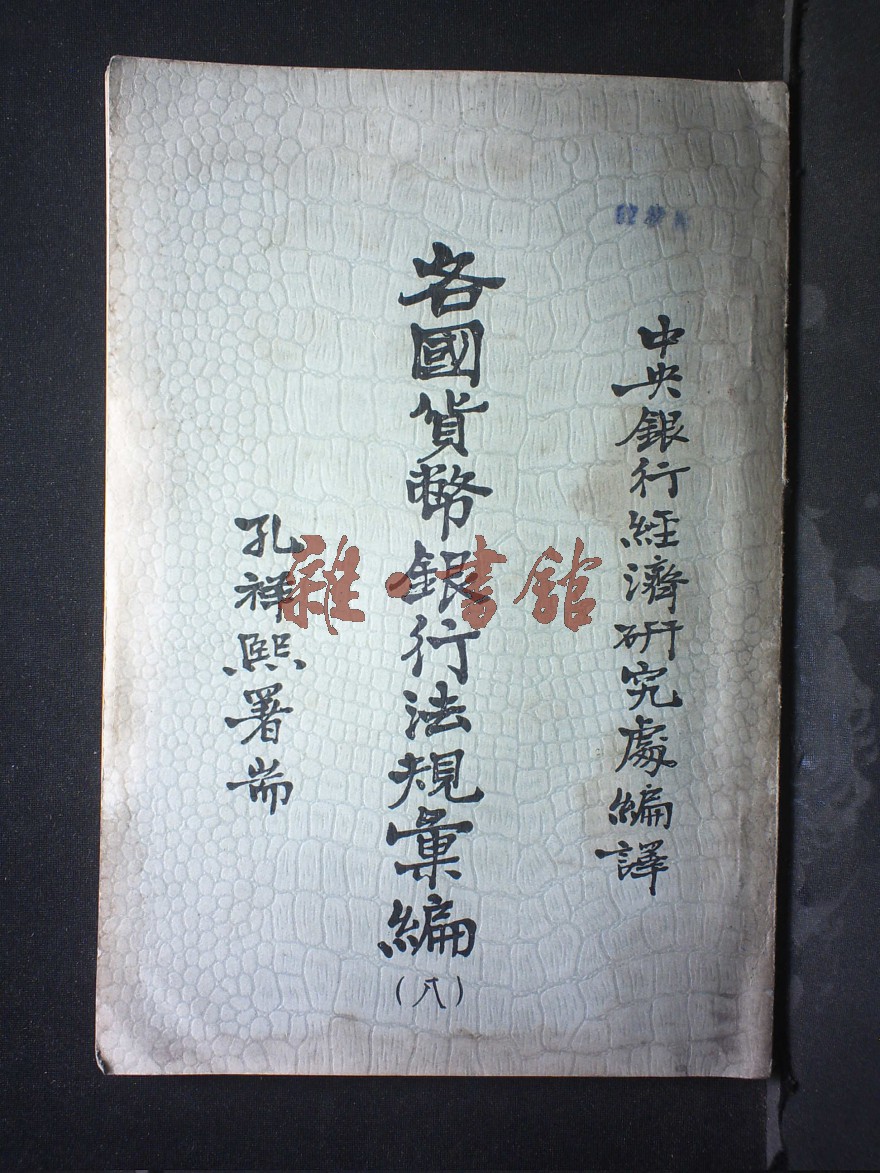 中央銀行經濟研究處編譯
各國貨幣銀行法規彙編
(八)
孔祥熙署耑
雜·書館